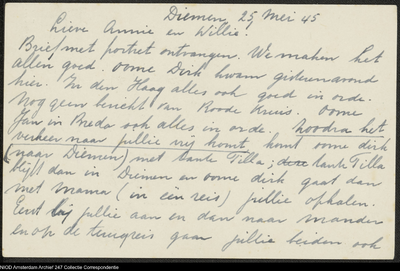 Diemen 25 Mei 45
Lieve Annie en Willie!
Brief met portret ontvangen. We maken het
allen goed. Oome Dirk kwam gisterenavond
hier. In den Haag alles ook goed en in orde.
Nog geen bericht van Roode Kruis. Oome
Jan in Breda ook alles in orde. Zoodra het
verkeer naar jullie vrij komt, komt oome dirk
(naar Diemen) met tante Tilla; deze tante Tilla
blijft dan in Diemen en oome dirk gaat dan
met mama (in één reis) jullie ophalen.
Eerst bij jullie aan en dan naar
en op de terugreis gaan jullie beiden ook
NIOD Amsterdam Archief 247 Collectie Correspondentie